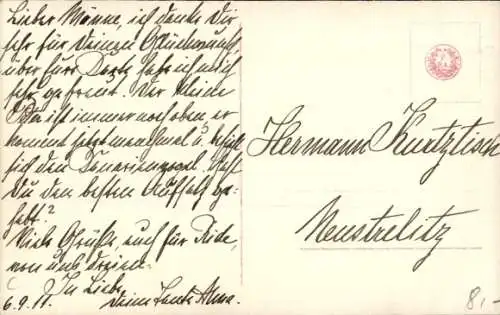 Lieber Männe, ich danke Dir
sehr für Deinen Glückwunsch,
über Eure Karte habe ich mich
sehr gefreut. Der kleine
ist immer noch oben er
kommt jetzt manchmal u. besieht
sich den Kanarienvogel. Hast
Du den besten Aufsatz ge-
habt?
Viele Grüße, auch für Frieda,
von uns dreien.
In Liebe
6.9.11. Deine Tante Alma.
Hermann
Neustrelitz
8,-